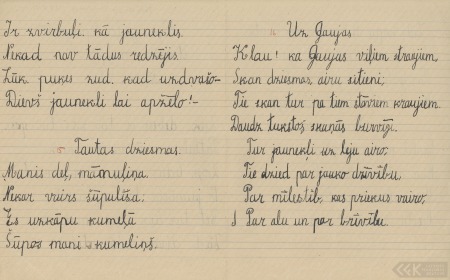 Ir zvirbuļi, kā jauneklis.
Nekad nav tādus redzējis.
Lūk pukes zud, kad uzdvašo-
Dievs jaunekli lai apžēlo!-
Tautas dziesmas.
Manis dēļ, māmuliņa,
Nekar vairs šūpulīša;
Es uzkāpu kumeļā
Šūpos mani kumeliņš.
Uz Gaujas
Klau! ka Gaujas viļņiem straujiem,
Skan dziesmas, airu sitieni;
Tie skan tur pa tum stāviem kraujiem.
Daudz tukstoš skaņās burvīgi.
Tur jaunekļi uz leju airo;
Tie dzied par jauko dzīvību,
Par mīlestīb, kas priekus vairo,
Par alu un par brīvību.